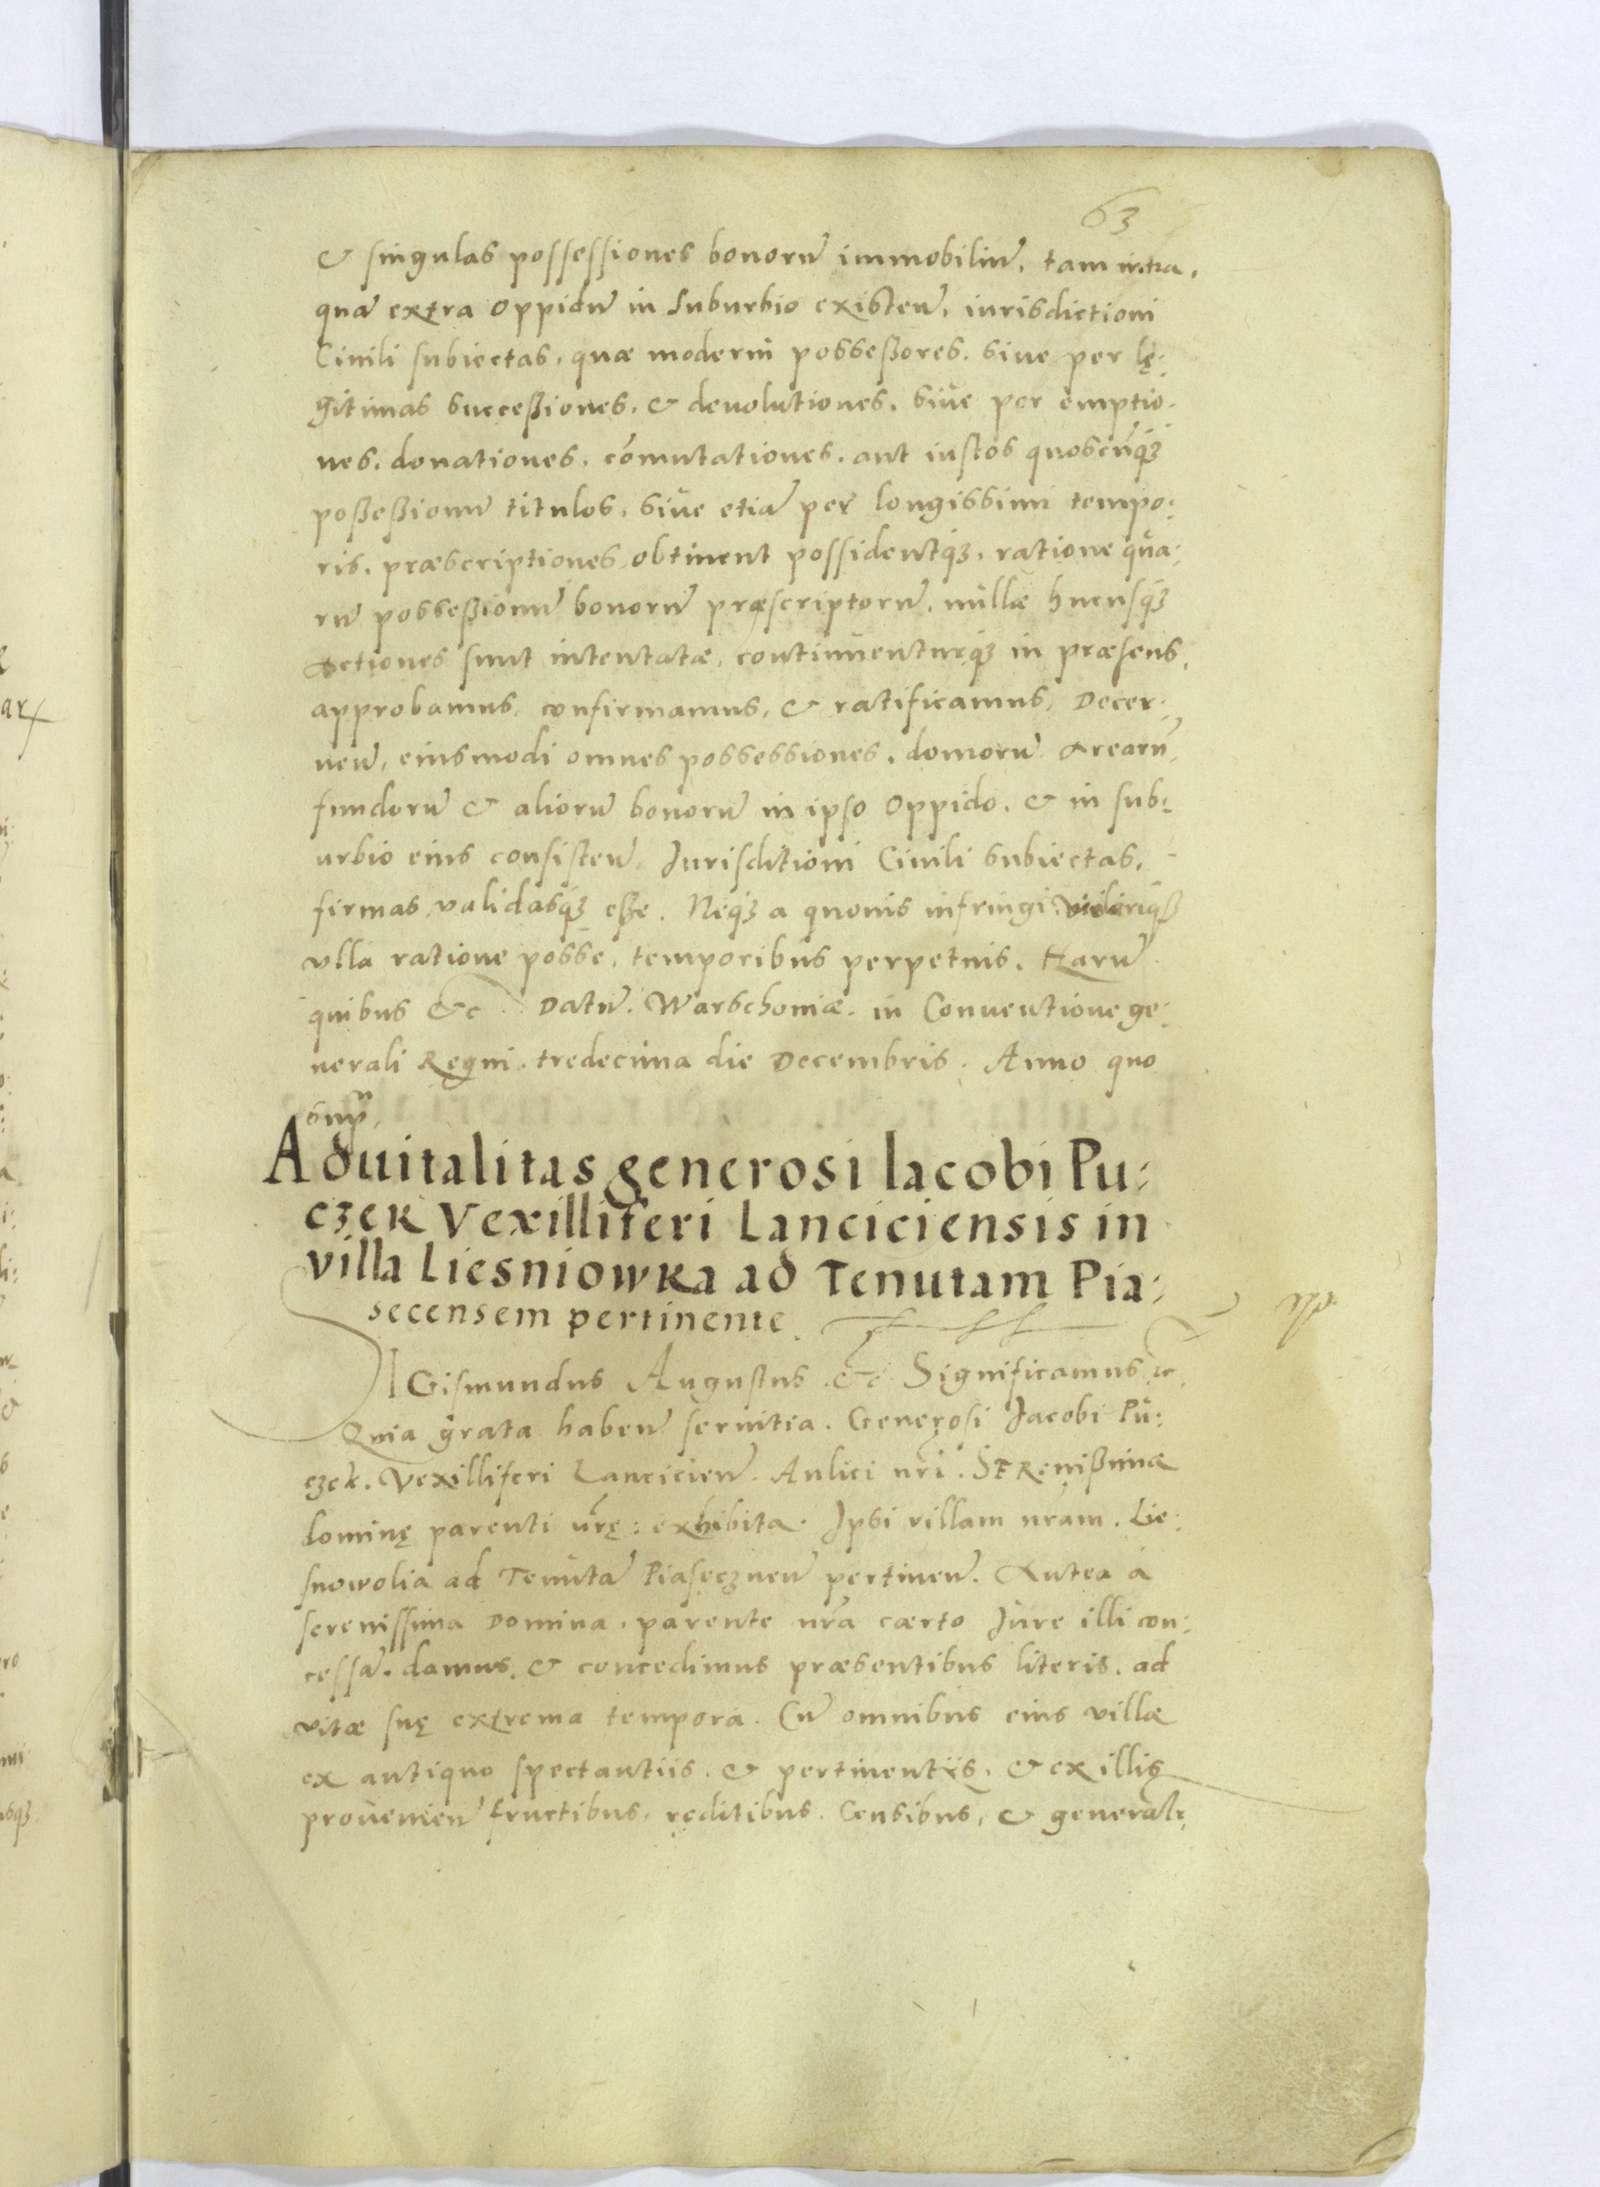 63
& singulas possessiones bonorũ immobiliũ, tam intra,
quã extra oppidũ in Suburbio existeñ, iurisdictioni
Ciuili subiectas, quæ moderni possessores, siue per lę:
gitimas successiones, & deuolutiones, siue per emptio:
nes, donationes, cõmutationes, aut iustos quoscũqʒ
poßeßionũ titulos, siue etiã per longissimi tempo:
ris, præscriptiones obtinent possidentqʒ, ratione qua:
rũ posseßionũ bonorũ præscriptorũ, nullæ hucusqʒ
Actiones sunt intentatæ, continuenturqʒ in præsens,
approbamus, confirmamus, & ratificamus, Decer:
neñ, eiusmodi omnes possessiones, domorũ Arearũ,
fundorũ & aliorũ bonorũ in ipso Oppido, & in sub:
urbio eius consisteñ, Jurisditioni Ciuili subiectas,
firmas validasqʒ eße. Neqʒ a quouis infringi, violariqʒ
vlla ratione posse, temporibus perpetuis, Harũ
quibus &c Datũ. Warschouiæ. in Conuentione ge:
nerali Regni, tredecima die Decembris. Anno quo
Aduitalitas generosi Iacobi Pu:
czek Vexilliferi Lanciciensis in
villa Liesniowka ad Tenutam Pia:
secensem pertinente
SIGismundus Augustus &c Significamus &c
Quia grata habeñ seruitia. Generosi Jacobi Pu:
czek. Vexilliferi Lancicieñ. Aulici nr̃i. SERenißimæ
dominę parenti nr̃ę: exhibita. Ipsi villam nr̃am. Lie:
snowolia ad Tenutã Piaseczneñ pertineñ. Antea à
serenissima Domina, parente nr̃a cærto Jure illi con:
cessã, damus, & concedimus præsentibus literis, ad
vitæ suę extrema tempora. Cũ omnibus eius villæ
ex antiquo spectantiis, & pertinentiis, & ex illis
prouenieñ fructibus, reditibus, Censibus, & general: